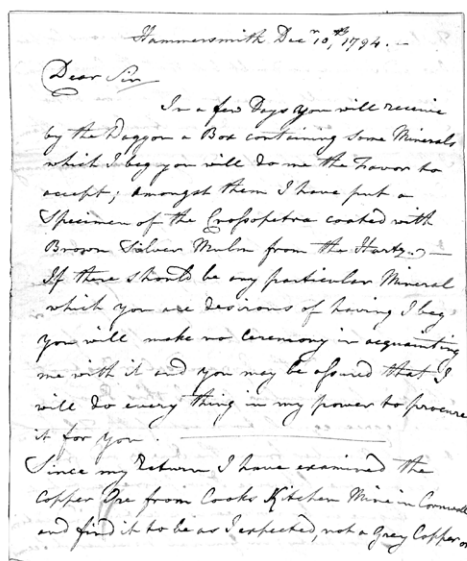 Hammersmith Decr. 10th, 1794. —
Dear Sir
In a few Days you will receive
by the Waggon a Box containing some Minerals
which I beg you will do me the Favor to
accept; amongst them I have put a
Specimen of the Crossopetra coated with
Brown Silver Mulm from the Hartz. —
If there should be any particular Mineral
which you are desirous of having I beg
you will make no ceremony in acquainting
me with it and you may be assured that I
will do every thing in my power to procure
it for you.
Since my Return I have examined the
Copper Ore from Cooks Kitchen Mine in Cornwall
and find it to be as I expected, not a Grey Copper or